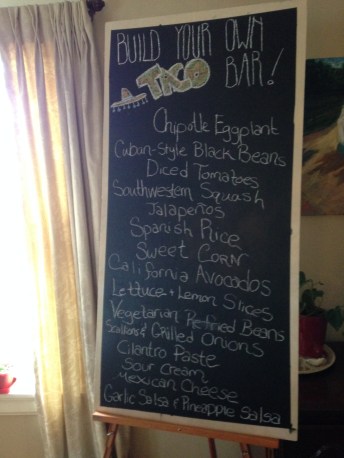 BUILD YOUR OWN
TACO BAR!
Chipotle Eggplant
Cuban-Style Black Beans
Diced Tomatoes
Southwestern Squash
Jalapeños
Spanish Rice
Sweet Corn
California Avocados
Lettuce + Lemon Slices
Vegetarian Refried Beans
Scallions & Grilled Onions
Cilantro Paste
Sour Cream
Mexican Cheese
Garlic Salsa & Pineapple Salsa